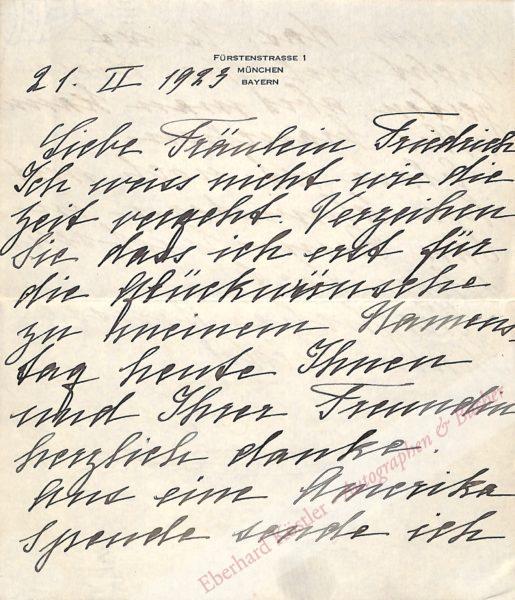 FÜRSTENSTRASSE 1
MÜNCHEN
BAYERN
21. II 1923
Liebe Fräulein Friedrich
Ich weiss nicht wie die
Zeit vergeht. Verzeihen
Sie dass ich erst für
die Glückwünsche
zu meinem Namens-
tag heute Ihnen
und Ihrer Freundin
herzlich danke.
Aus eine Amerika
Spende sende ich
Eberhard Köstler Autographen & Bücher